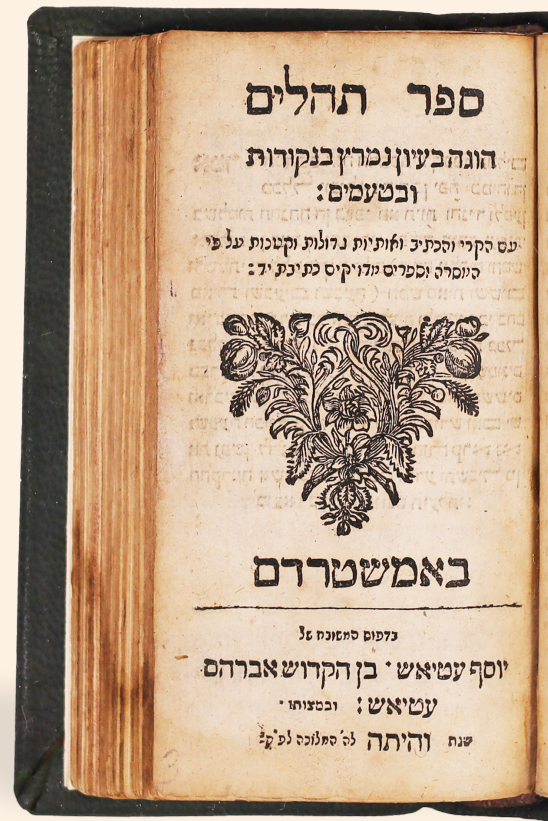 ספר תהלים
הוגה בעיון נמרץ בנקודות
ובטעמים:
עם הקרי והכתיב ואותיות גדולות וקטנות על פי
המסרה וספרים מדויקים כתיבת יד:
באמשטרדם
בדפוס המשובח של
יוסף עטיאש · בן הקדוש אברהם
עטיאש: ובמצותו ·
שנת והיתה לה' המלוכה לפ"ק:
3